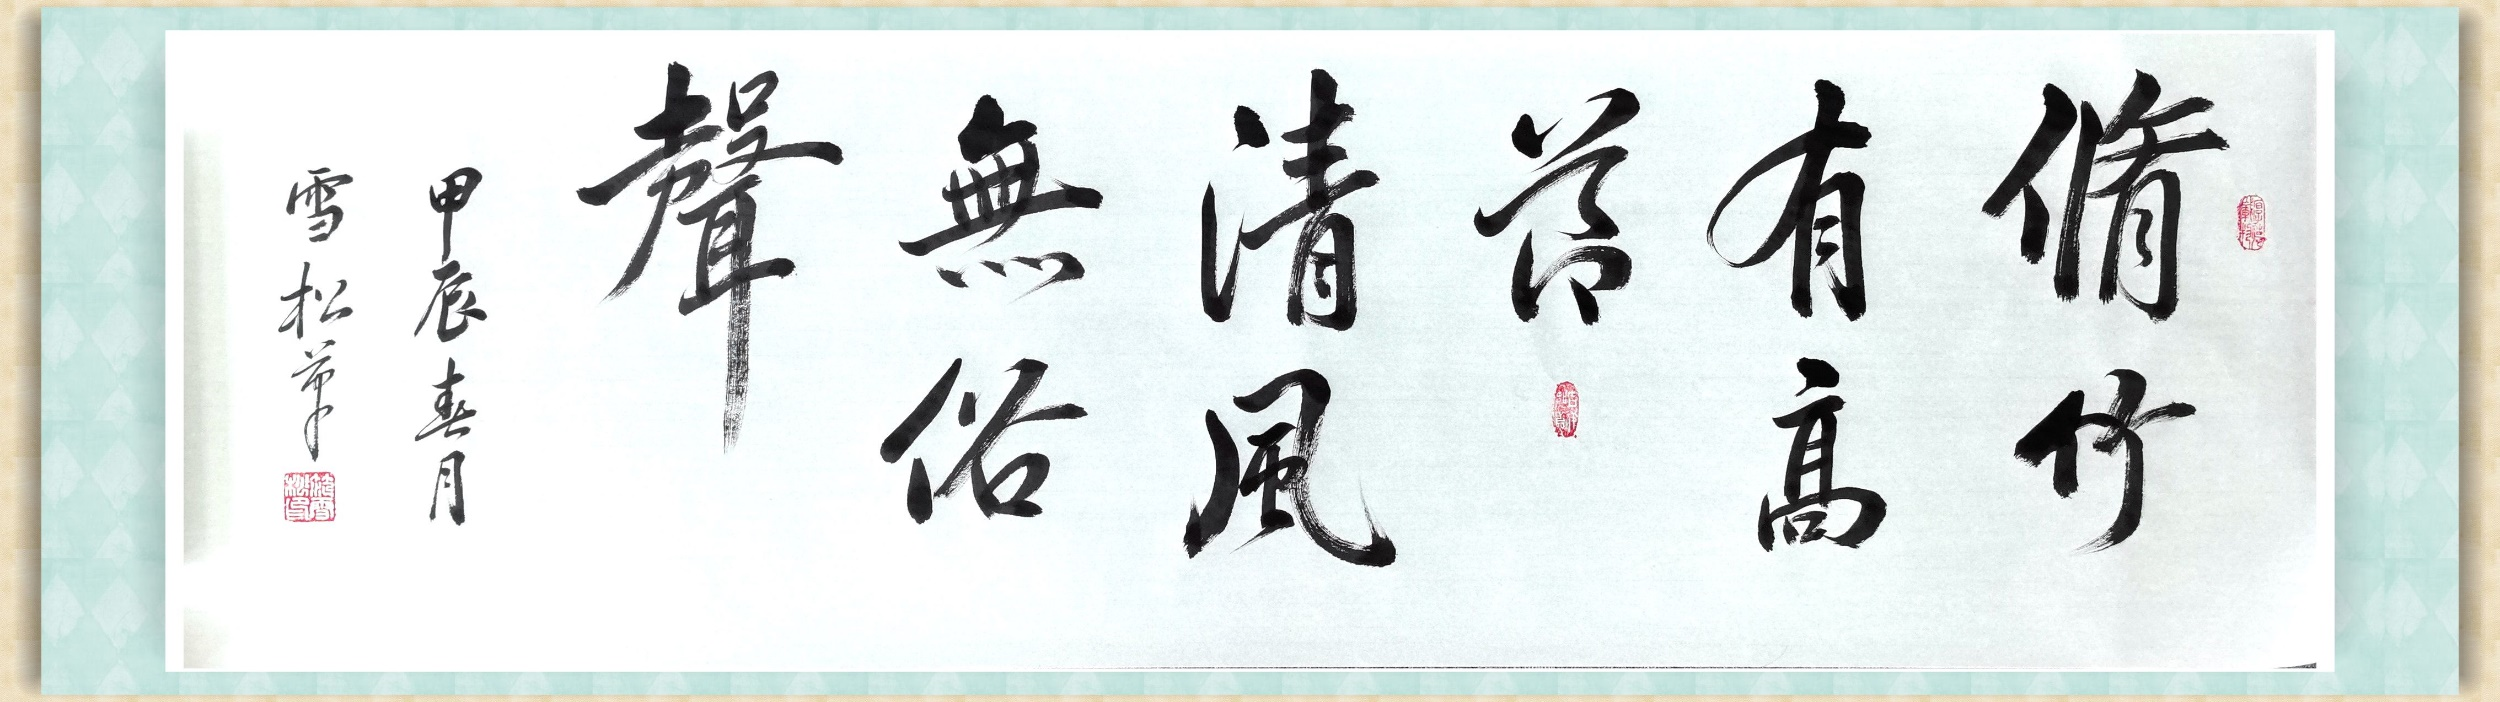 脩竹
有高
節
清風
無俗
聲
甲辰春月
雪松筆